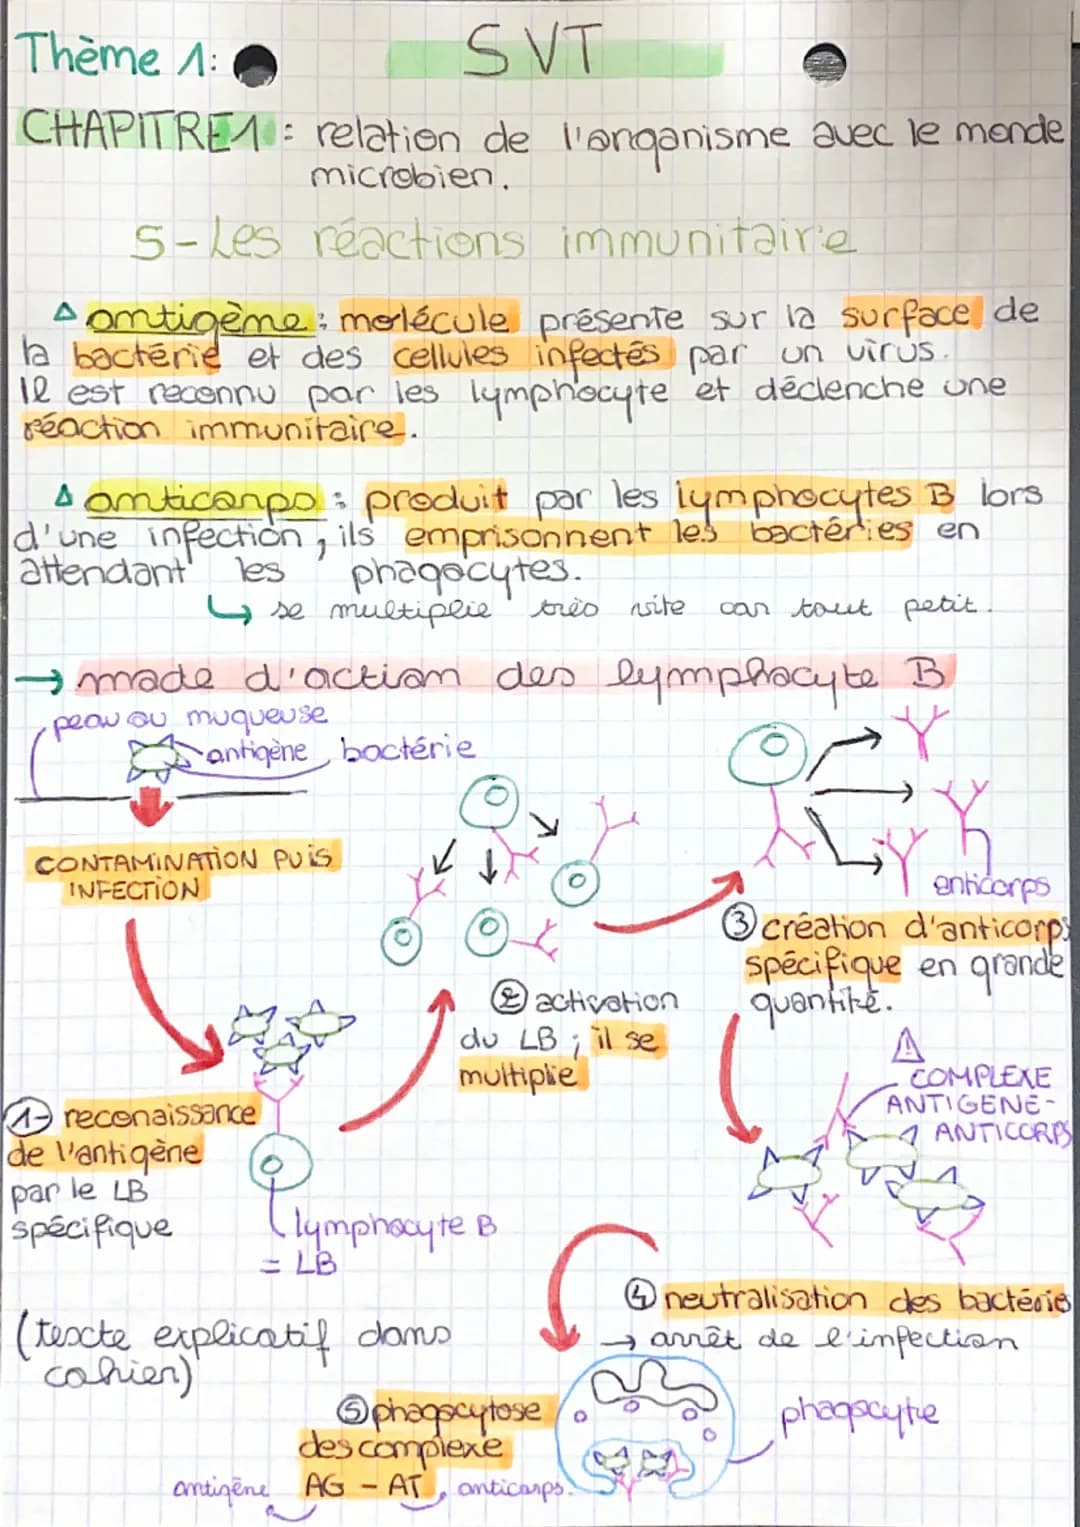 Thème 1:
SVT
CHAPITRE 1 : relation de l'organisme avec le monde
microbien.
5-Les réactions immunitaire
△ antigène : molécule présente sur la surface de
la bactérie et des cellules infectés par un virus.
Il est reconnu par les lymphocyte et déclenche une
réaction immunitaire.
△ anticorps : produit par les lymphocytes B lors
d'une infection, ils emprisonnent les bactéries en
attendant les phagocytes.
↳ se multiplie très vite car tout petit.
→ mode d'action des lymphocyte B
peau ou muqueuse
antigène bactérie
CONTAMINATION PUIS
INFECTION
anticorps
③ création d'anticorps
spécifique en grande
quantité.
② activation
du LB ; il se
multiplie
⚠
COMPLEXE
ANTIGENE-
ANTICORPS
1- reconaissance
de l'antigène
par le LB
spécifique
lymphocyte B
= LB
④ neutralisation des bactéries
→ arrêt de l'infection
(texte explicatif dans
cahier)
⑤ phagocytose
des complexe
antigène AG - AT, anticorps.
phagocytie